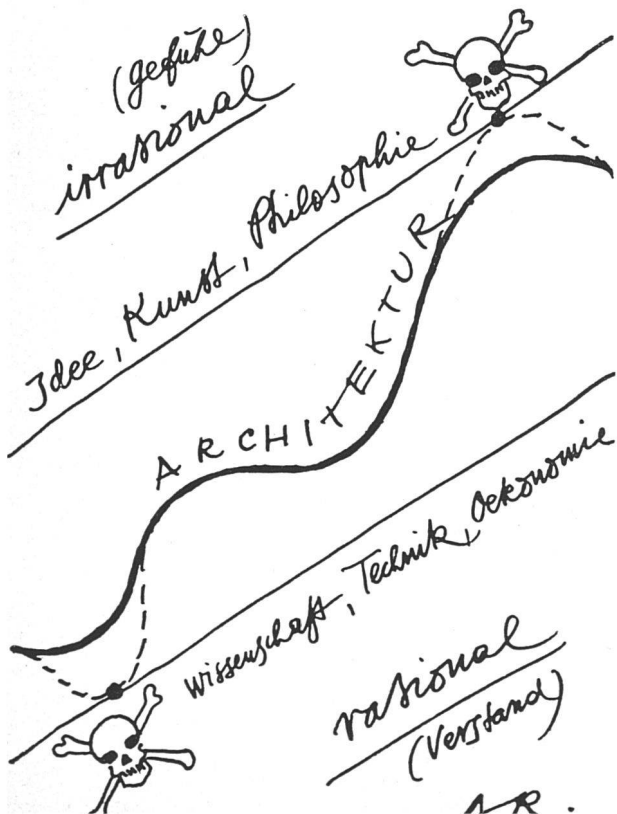 (Gefühle)
irrational
Idee, Kunst, Philosophie
ARCHITEKTUR
Wissenschaft, Technik, Oekonomie
rational
(Verstand)